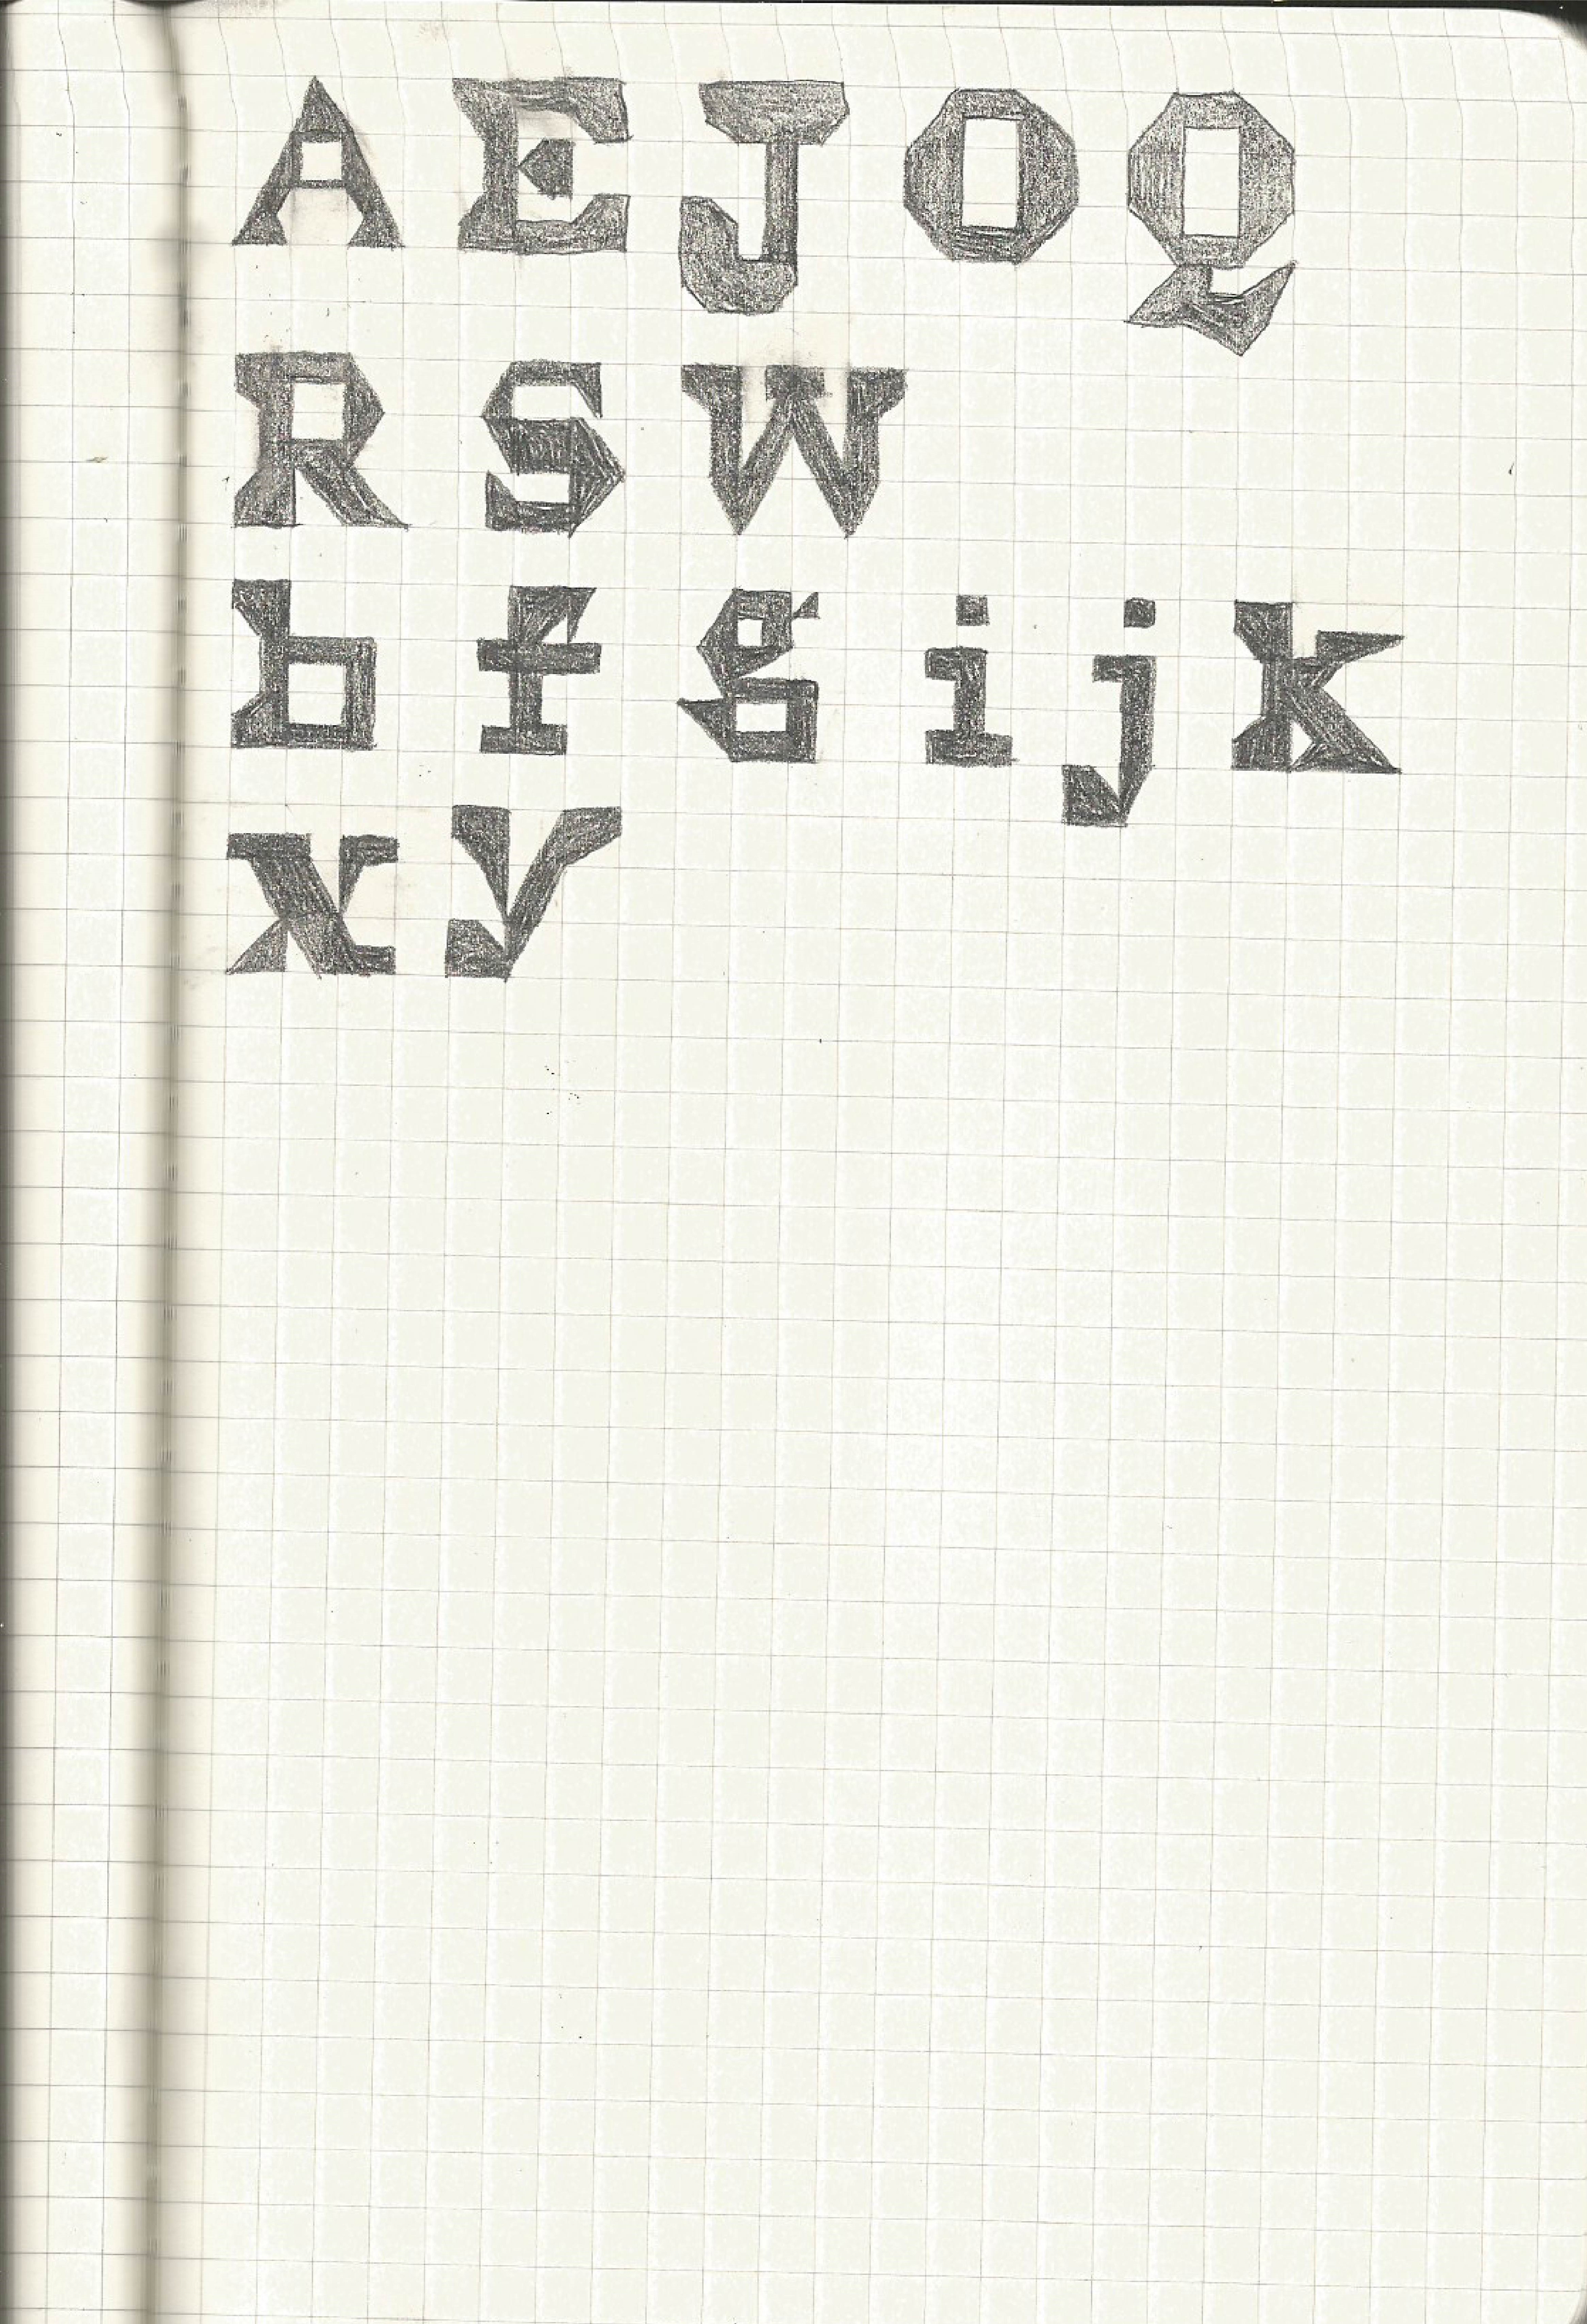 A E J O Q
R S W
b f g i j k
x y